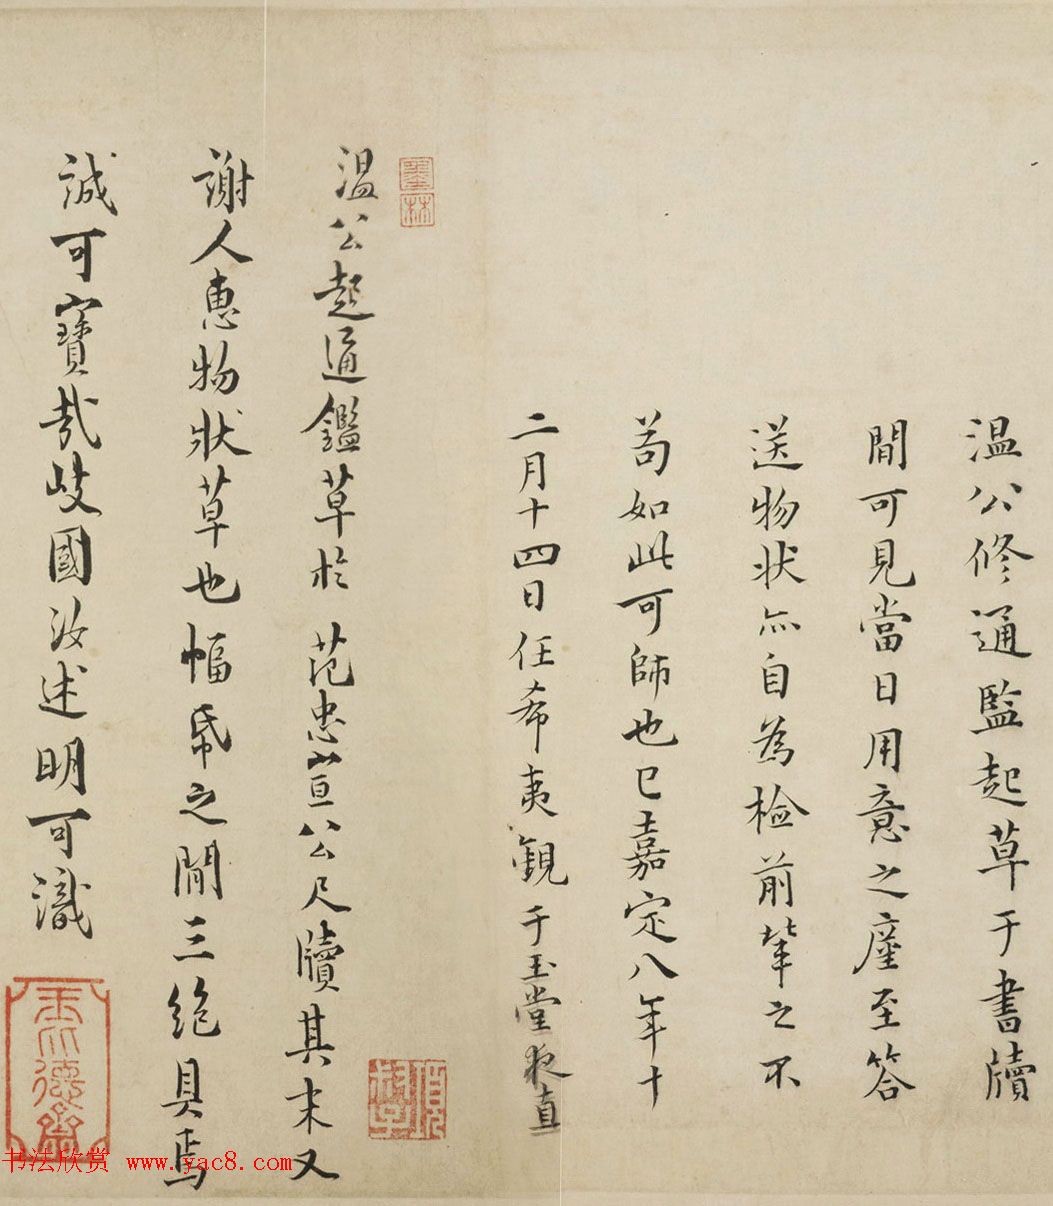 温公修通監起草于書牘
間可見當日用意之㢓至答
送物状亦自為檢前軰之不
苟如此可師也已嘉定八年十
二月十四日任希夷觀于玉堂夜直
墨林
温公起通鑑草於范忠宣公尺牘其末又
謝人惠物狀草也幅帋之間三絶具焉
誠可寶哉岐國汝述明可識
項元
书法欣赏 www.yac8.com